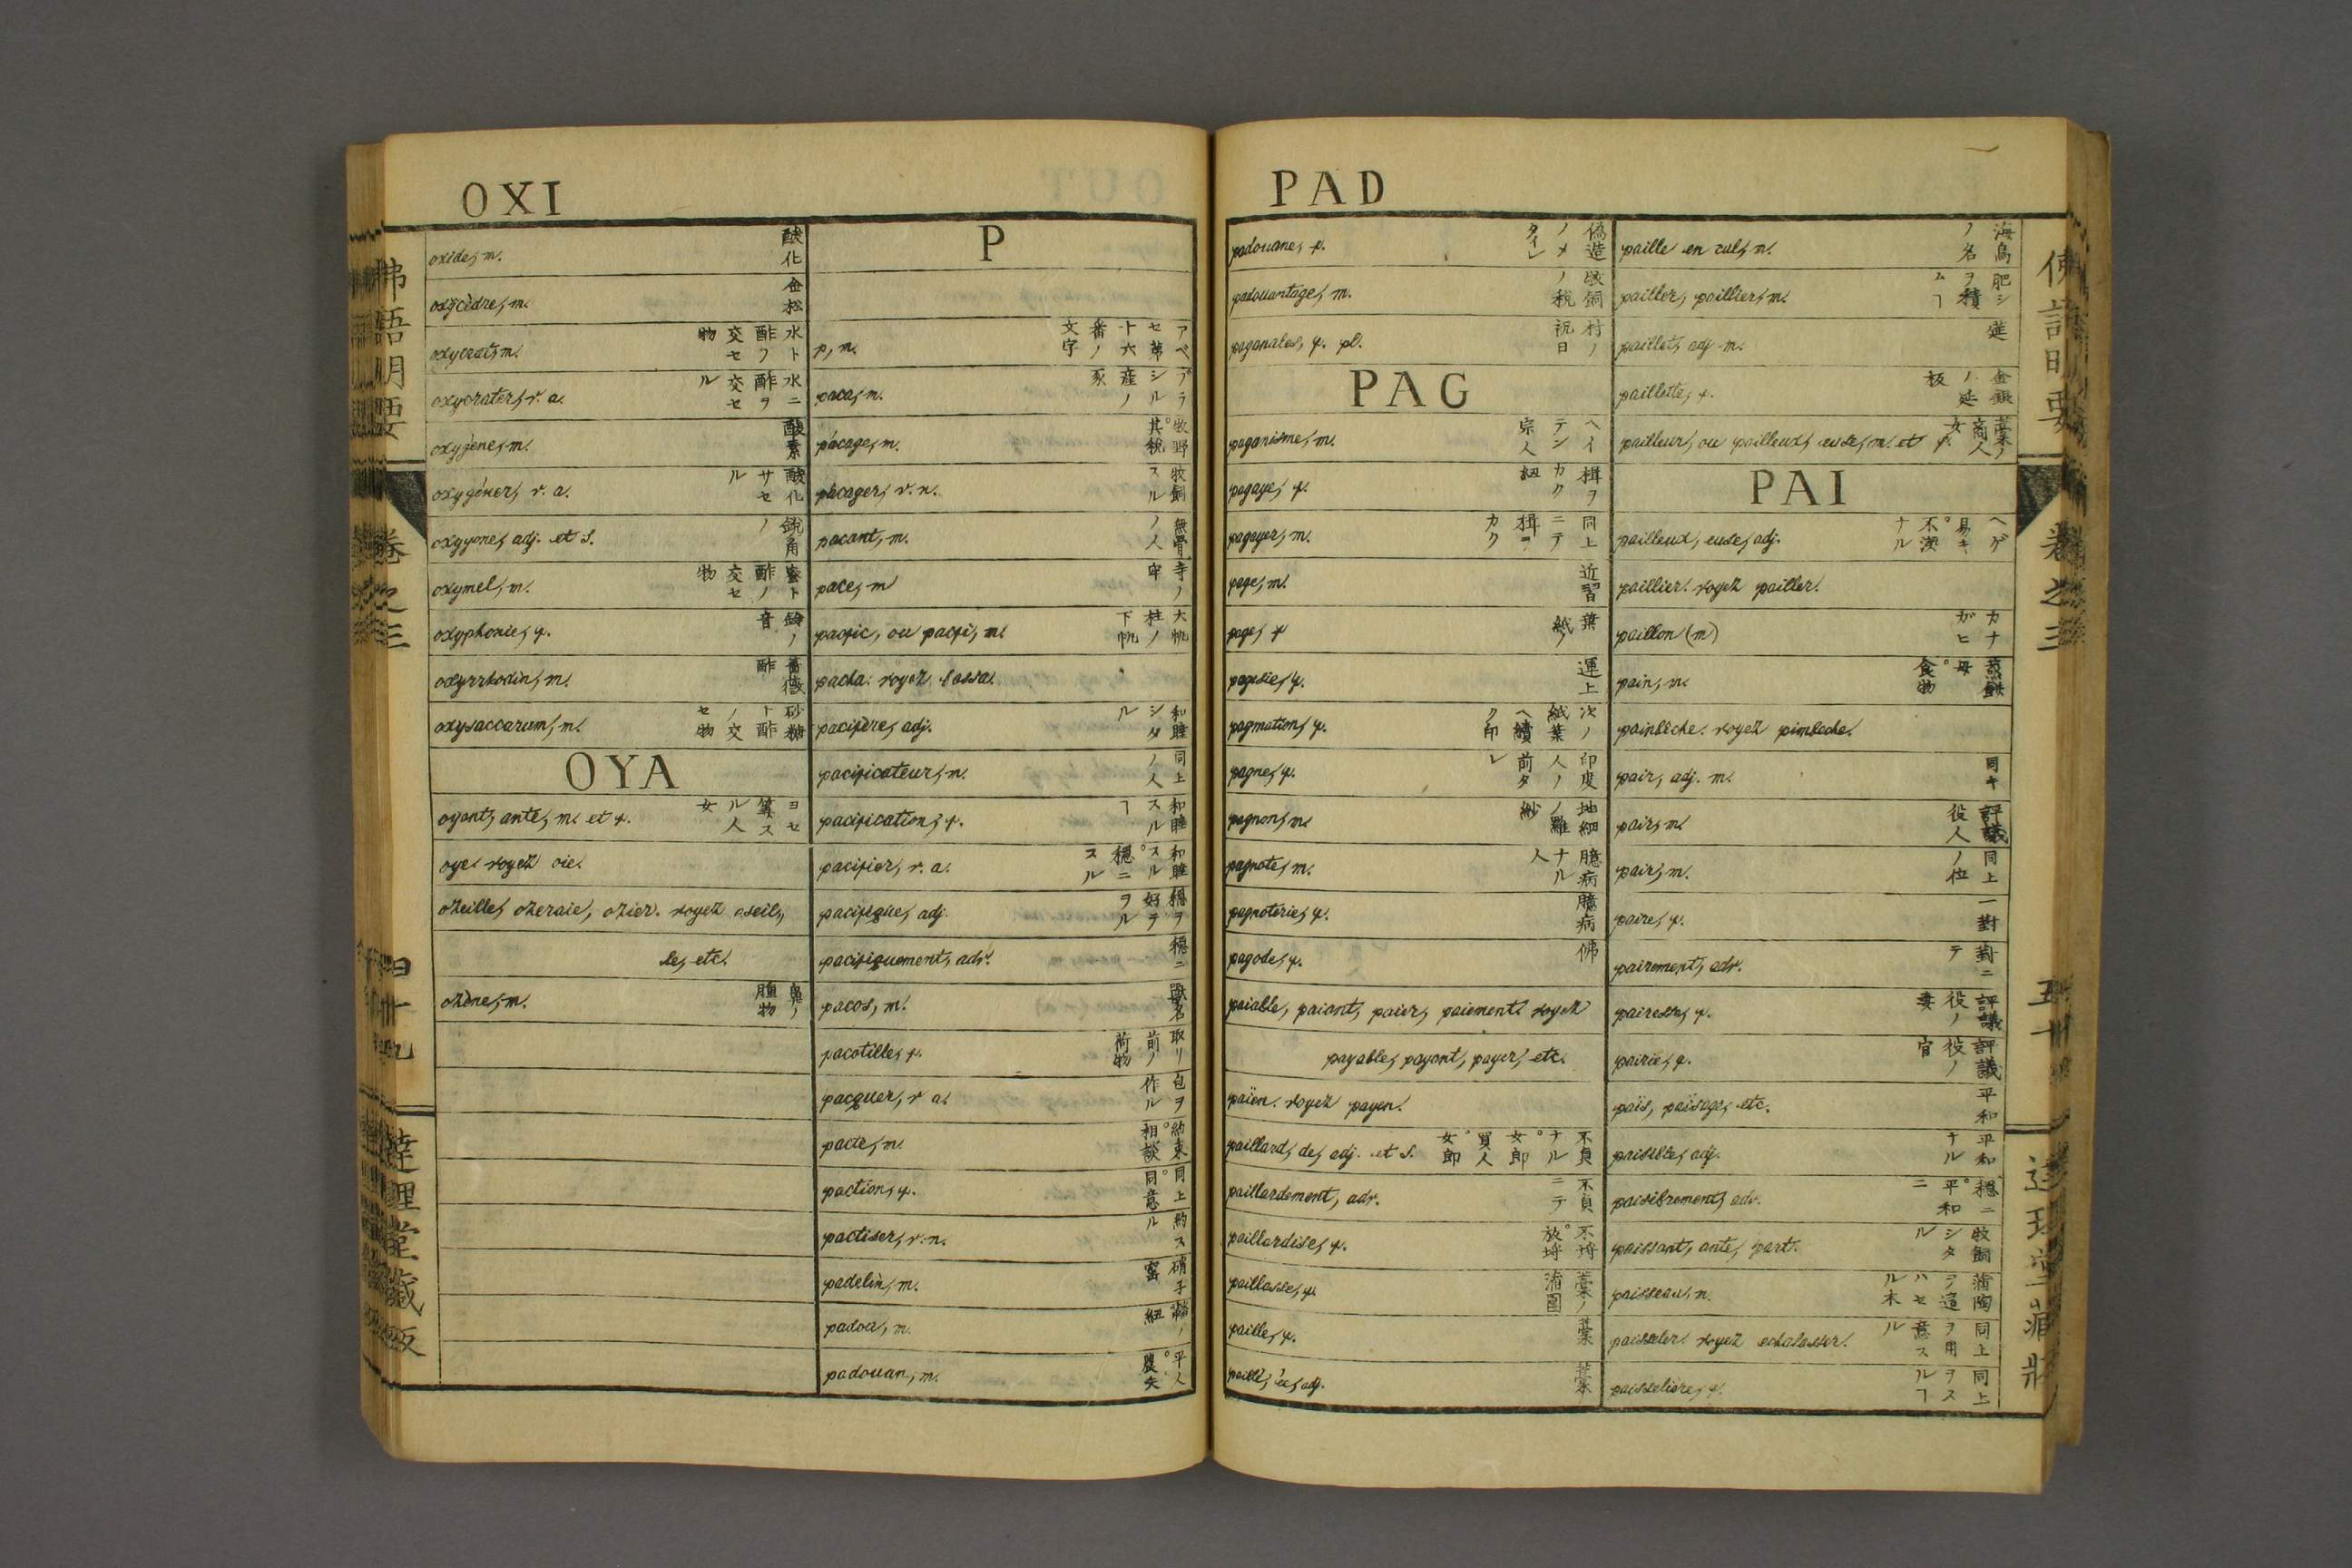 OXI
oxide, m. 酸化
oxycèdre, m. 金松
oxycrat, m. 水ト酢ノ交セ物
oxycrater, v. a. 水ニ酢ヲ交セル
oxygène, m. 酸素
oxygéner, v. a. 酸化サセル
oxygone, adj. et s. 鋭角ノ
oxymel, m. 蜜ト酢ノ交セ物
oxyphonie, f. 鈴ノ音
oxyrrhodin, m. 薔薇酢
oxysaccarum, m. 砂糖ト酢ノ交セ物
OYA
oyant, ante, m. et f. ヨセ算スル人 女
oye. voyez oie.
ozeille, ozeraie, ozier. voyez oseil,,
le, etc.
ozène, m. 鼻ノ腫物
P
p, m. アベセ第十六番ノ文字
paca, m. ブラシル産ノ豕
pâcage, m. 牧野。其税
pâcager, v. n. 牧飼スル
pacant, m. 無骨ノ人
pace, m 寺ノ牢
pacfic, ou pacfi, m. 大帆柱ノ下帆
pacha. voyez bassa.
pacifère, adj. 和睦シタル
pacificateur, m. 同上ノ人
pacification, f. 和睦スルヿ
pacifier, v. a. 和睦スル。穏ニスル
pacifique, adj. 穏ヲ好テヲル
pacifiquement, adv. 穏ニ
pacos, m. 獣名
pacotille, f. 取リ前ノ荷物
pacquer, v a. 包ヲ作ル
pacte, m. 約束。相談
paction, f. 同上。同意
pactiser, v. n. 約スル
padelin, m. 硝子窯
padou, m. 紐
padouan, m. 平人。農夫
佛語明要 卷之三 四十九 達理堂藏版
PAD
padouane, f. 偽造ノメタイレ
padouantage, m. 牧飼ノ税
paganales, f. pl. 村ノ祝日
PAG
paganisme, m. ヘイテン宗人
pagaye, f. 楫ヲカク紐
pagayer, m. 同上ニテ楫ヲカク
page, m. 近習
page, f 紙ノ葉
pagésie, f. 運上
pagmation, f. 次ノ紙葉ヘ續ク印
pagne, f. 印度人ノ前タレ
pagnon, m. 地細ノ羅紗
pagnote, m. 臆病ナル人
pagnoterie, f. 臆病
pagode, f. 佛
paiable, paiant, paier, paiement. voyez
payable, payant, payer, etc.
païen. voyez payen.
paillard, de, adj. et s. 不貞ナル。女郎買人。女郎
paillardement, adv. 不貞ニテ
paillardise, f. 不埒。放埒
paillasse, f. 藁ノ蒲團
paille, f. 藁
paillé, ée, adj. 藁
paille en cul, m. 海鳥ノ名
pailler, paillier, m. 肥シヲ積ムヿ
paillet, adj. m.
paillette, f. 金銀ノ延板
pailleur, ou pailleux, euse, m. et f. 藁ノ商人 女
PAI
pailleux, euse, adj. ヘゲ易キ。不潔ナル
paillier. voyez pailler.
paillon (m) カナガヒ
pain, m. 蒸餅。食物
painbêche. voyez pimbeche.
pair, adj. m. 同キ
pair, m. 評議役人
pair, m. 同上ノ位
paire, f. 一對
pairement, adv. 對ニテ
pairesse, f. 評議役ノ妻
pairie, f. 評議役ノ官
païs, païsage, etc. 平和
paisible, adj. 平和ナル
paisiblement, adv. 穏ニ。平和ニ
paissant, ante, part. 牧飼シタル
paisseau, m. 蒲陶ヲ這ハセル木
paisseler. voyez echalasser. 同上ヲ用意スル
paisselière, f. 同上ヲスルヿ
佛語明要 卷之三 五十 達理堂藏版